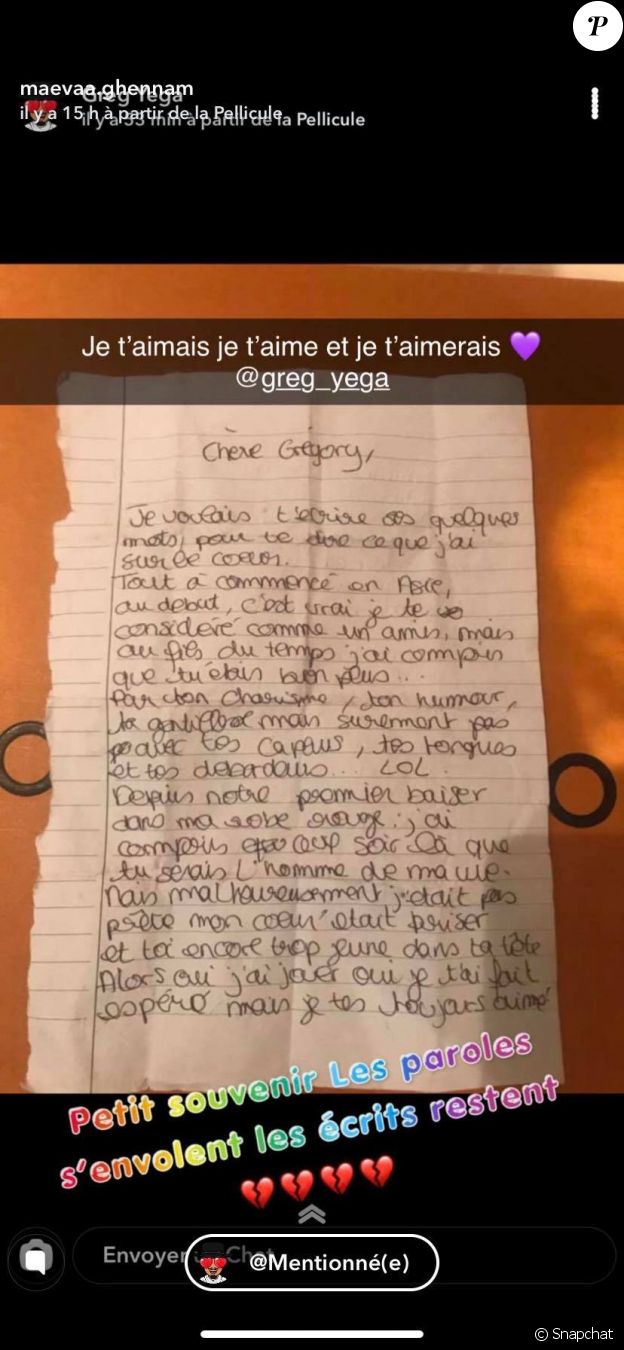 P
maevaa.ghennam
Greg Yega
il y a 15 h à partir de la Pellicule
il y a 53 min à partir de la Pellicule
Je t’aimais je t’aime et je t’aimerais 💜
@greg_yega
Chère Grégory,
Je voulais t'écrire ces quelques
mots, pour te dire ce que j'ai
sur le coeur.
Tout à commencé en Asie,
au debut, c'est vrai je te
consideré comme un amis, mais
au fils du temps j'ai compris
que tu étais bien plus...
Par ton charisme, ton humour,
ta gentillesse mais surement pas
avec tes capeus, tes tongues
et tes debardeurs... LOL.
Depuis notre premier baiser
dans ma robe rouge j'ai
compris ce soir là que
tu serais L'homme de ma vie.
Mais malheureusement j'etait pas
prête mon coeur etait briser
et toi encore trop jeune dans ta tête
Alors oui j'ai jouer oui je t'ai fait
espéré mais je tes toujours aimé
Petit souvenir Les paroles
s’envolent les écrits restent
💔💔💔💔
Envoyer un Chat
@Mentionné(e)
© Snapchat